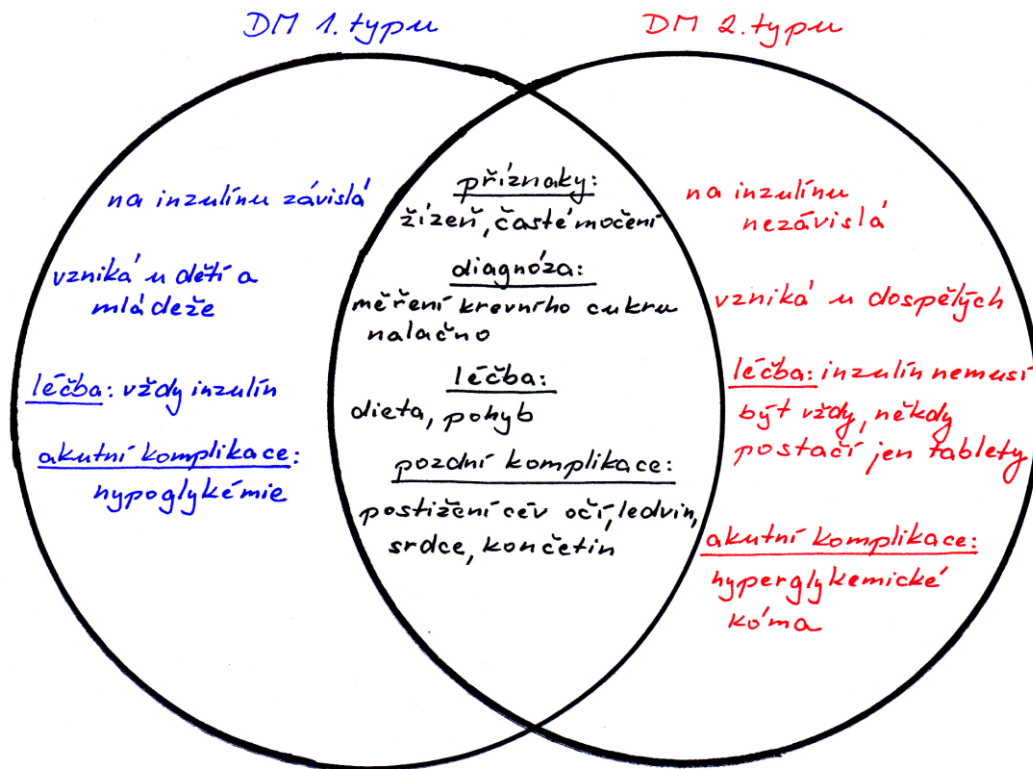 DM 1. typu
na inzulínu závislá
vzniká u dětí a
mládeže
léčba: vždy inzulín
akutní komplikace:
hypoglykémie
příznaky:
žízeň, časté močení
diagnóza:
měření krevního cukru
nalačno
léčba:
dieta, pohyb
pozdní komplikace:
postižení cév očí, ledvin,
srdce, končetin
DM 2. typu
na inzulínu
nezávislá
vzniká u dospělých
léčba: inzulín nemusí
být vždy, někdy
postačí jen tablety
akutní komplikace:
hyperglykemické
kóma